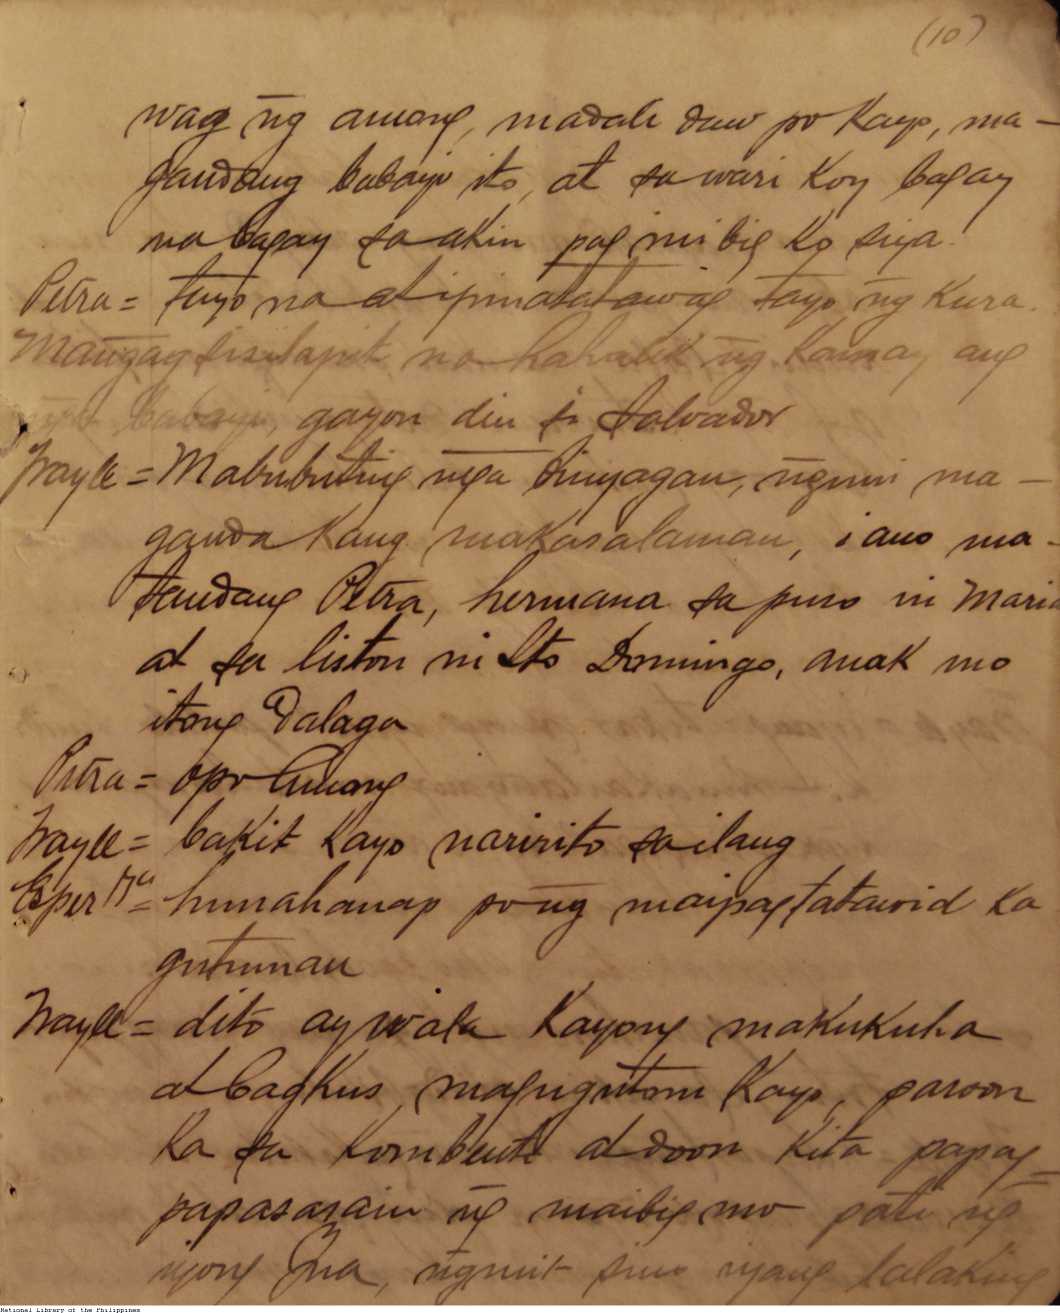 (10)
wag ñg among, madali daw po kayo, ma-
gandang babayi ito, at sa wari koy bagay
na bagay sa akin pag inibig ko siya.
Petra = tayo na at ipinatatawag tayo ñg kura.
Mañgag sisilapit na hahalik ñg kamay ang
mga babayi, gayon din si Salvador
Frayle = Mabubuting mga binyagan, ñguni ma-
ganda kang makasalanan, i ano ma-
tandang Petra, hermana sa puso ni Maria
at sa liston ni Sto Domingo, anak mo
itong dalaga
Petra = opo Among
Frayle = bakit kayo naririto sa ilang
Esper za = humahanap po ñg maipagtatawid ka
gutuman
Frayle = dito ay wala kayong makukuha
at bagkus magugutom kayo, paroon
ka sa kombento at doon kita papag=
papasasain ñg maibig mo pati ñg
iyong Ina, ñgunit sino iyang lalaking
National Library of the Philippines